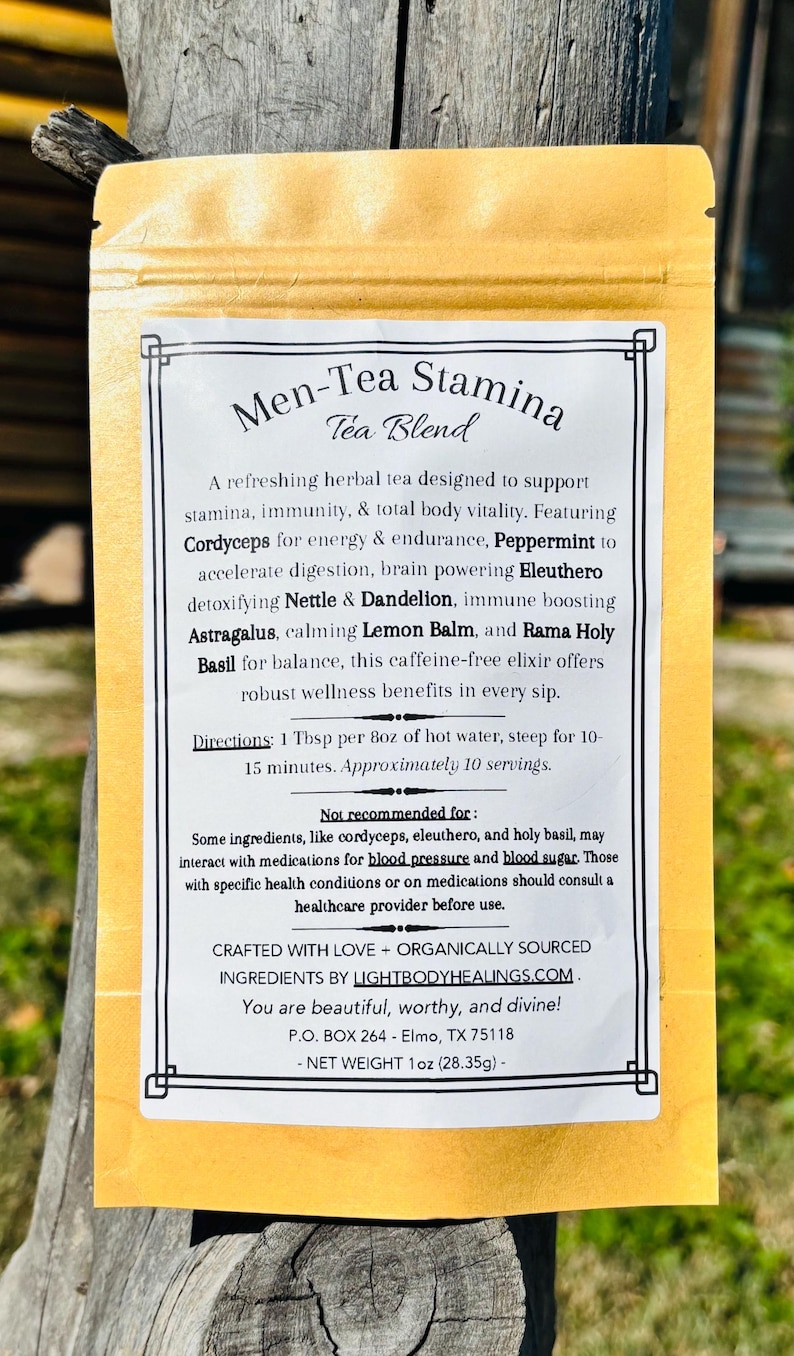 Men-Tea Stamina
Tea Blend
A refreshing herbal tea designed to support
stamina, immunity, & total body vitality. Featuring
Cordyceps for energy & endurance, Peppermint to
accelerate digestion, brain powering Eleuthero
detoxifying Nettle & Dandelion, immune boosting
Astragalus, calming Lemon Balm, and Rama Holy
Basil for balance, this caffeine-free elixir offers
robust wellness benefits in every sip.
Directions: 1 Tbsp per 8oz of hot water, steep for 10-
15 minutes. Approximately 10 servings.
Not recommended for :
Some ingredients, like cordyceps, eleuthero, and holy basil, may
interact with medications for blood pressure and blood sugar. Those
with specific health conditions or on medications should consult a
healthcare provider before use.
CRAFTED WITH LOVE + ORGANICALLY SOURCED
INGREDIENTS BY LIGHTBODYHEALINGS.COM .
You are beautiful, worthy, and divine!
P.O. BOX 264 - Elmo, TX 75118
- NET WEIGHT 1oz (28.35g) -